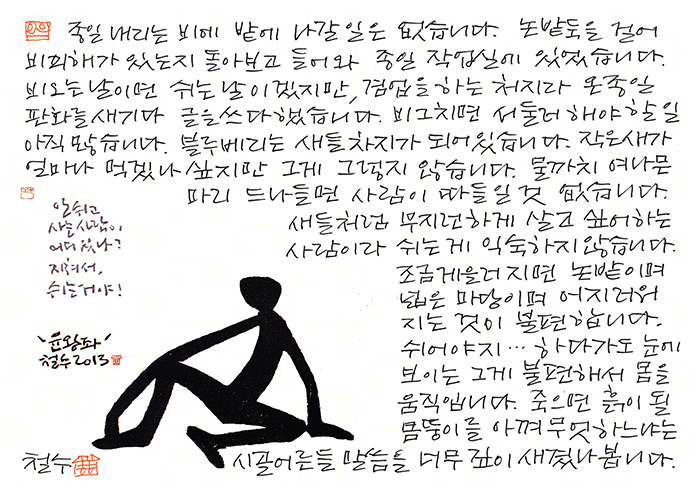 종일 내리는 비에 밭에 나갈 일은 없습니다. 논밭둑을 걸어
비피해가 있는지 돌아보고 들어와 종일 작업실에 있었습니다.
비오는날이면 쉬는 날이겠지만, 겸업을하는 처지라 온종일
판화를새기다 글을쓰다 했습니다. 비그치면 서둘러 해야 할 일
아직 많습니다. 블루베리는 새들차지가 되어있습니다. 작은새가
얼마나 먹겠나 싶지만 그게 그렇지 않습니다. 물까치 여나믄
마리 드나들면 사람이 따들일 것 없습니다.
새들처럼 부지런하게 살고 싶어하는
사람이라 쉬는게 익숙하지않습니다.
조금게을러 지면 논밭이며
넓은 마당이며 어지러워
지는 것이 불편합니다.
쉬어야지… 하다가도 눈에
보이는 그게 불편해서 몸을
움직입니다. 죽으면 흙이 될
몸뚱이를 아껴 무엇하느냐는
시골어른들 말씀을 너무 깊이 새겼나봅니다.
안쉬고
사는사람이
어디있나?
지쳐서,
쉬는거야!
"윤왕좌"
철수2013
철수